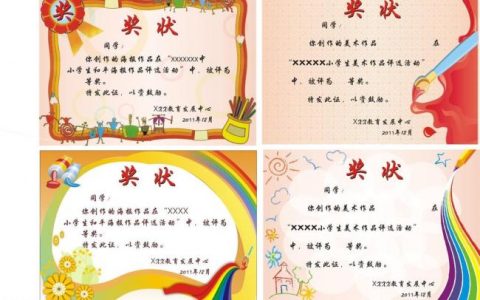 奖
奖状
同学:
你创作的海报作品在“XXXXXXX中
小学生和平海报作品评选活动”中,被评为
等奖。
特发此证,以资鼓励。
XZZ教育发展中心
2011年12月
奖状
同学:
你创作的美术作品 在
“XXXXX小学生美术作品评选活动”
中,被评为 等奖。
特发此证,以资鼓励。
XZZ教育发展中心
2011年12月
奖状
同学:
你创作的海报作品在“XXXX
小学生和平海报作品评选活动”中,被评为
等奖。
特发此证,以资鼓励。
XZZ教育发展中心
2011年12月
奖状
同学:
你创作的美术作品 在
“XXXX小学生美术作品评选活动”
中,被评为 等奖。
特发此证,以资鼓励。
XZZ教育发展中心
2011年12月